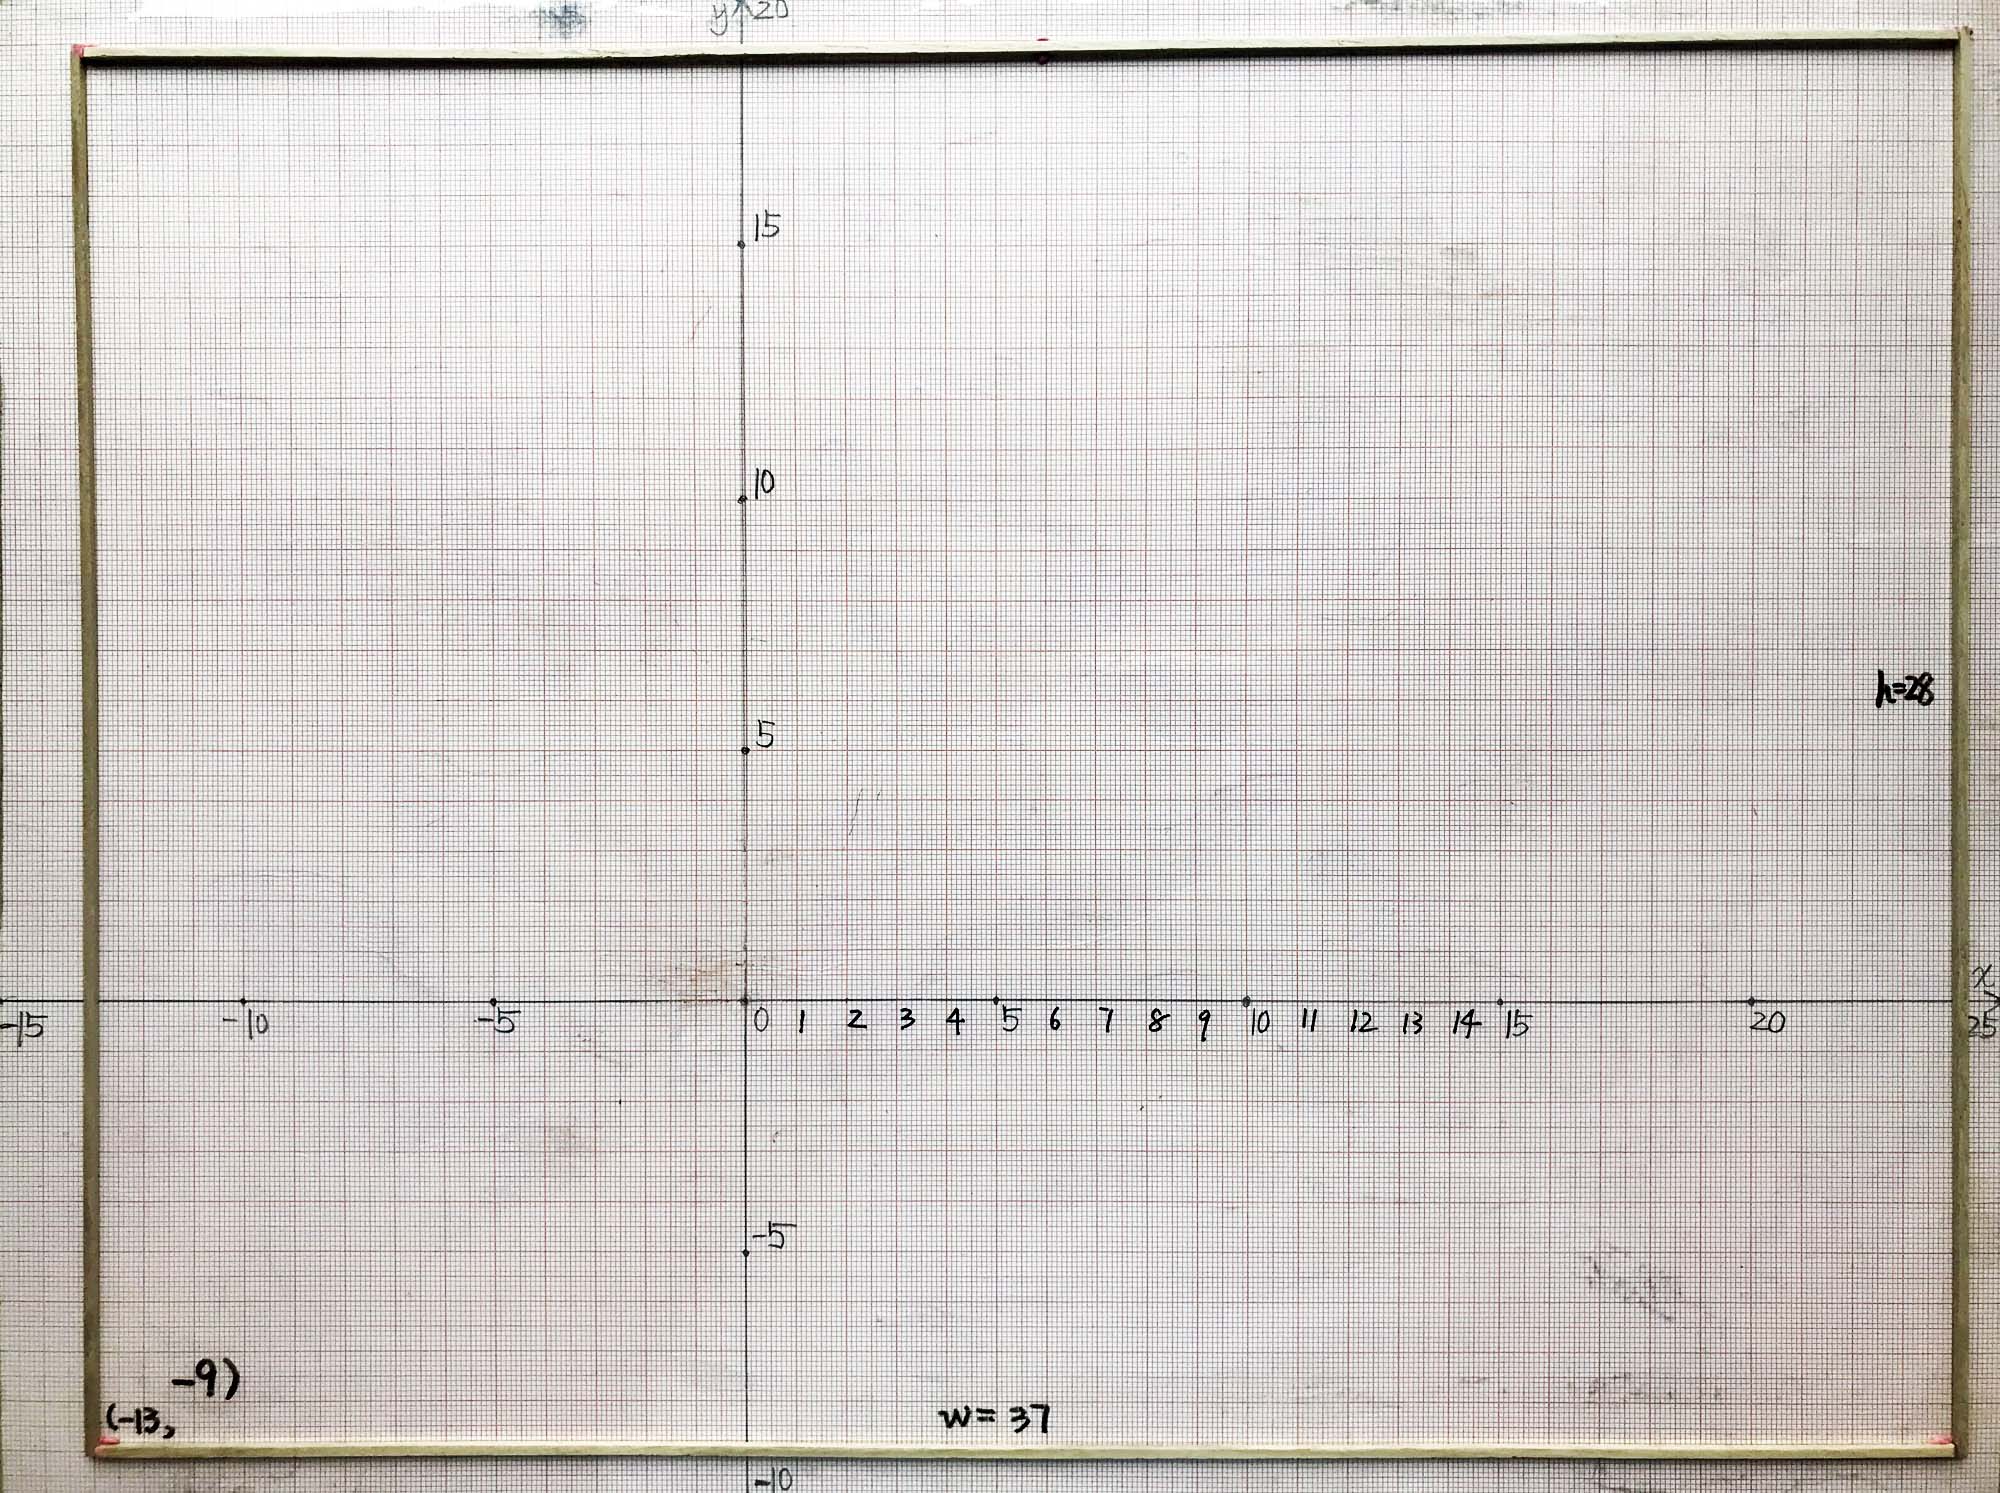 y 20
15
10
5
h=28
x
-15 -10 -5 0 1 2 3 4 5 6 7 8 9 10 11 12 13 14 15 20 25
-5
-9)
(-13,
w= 37
-10